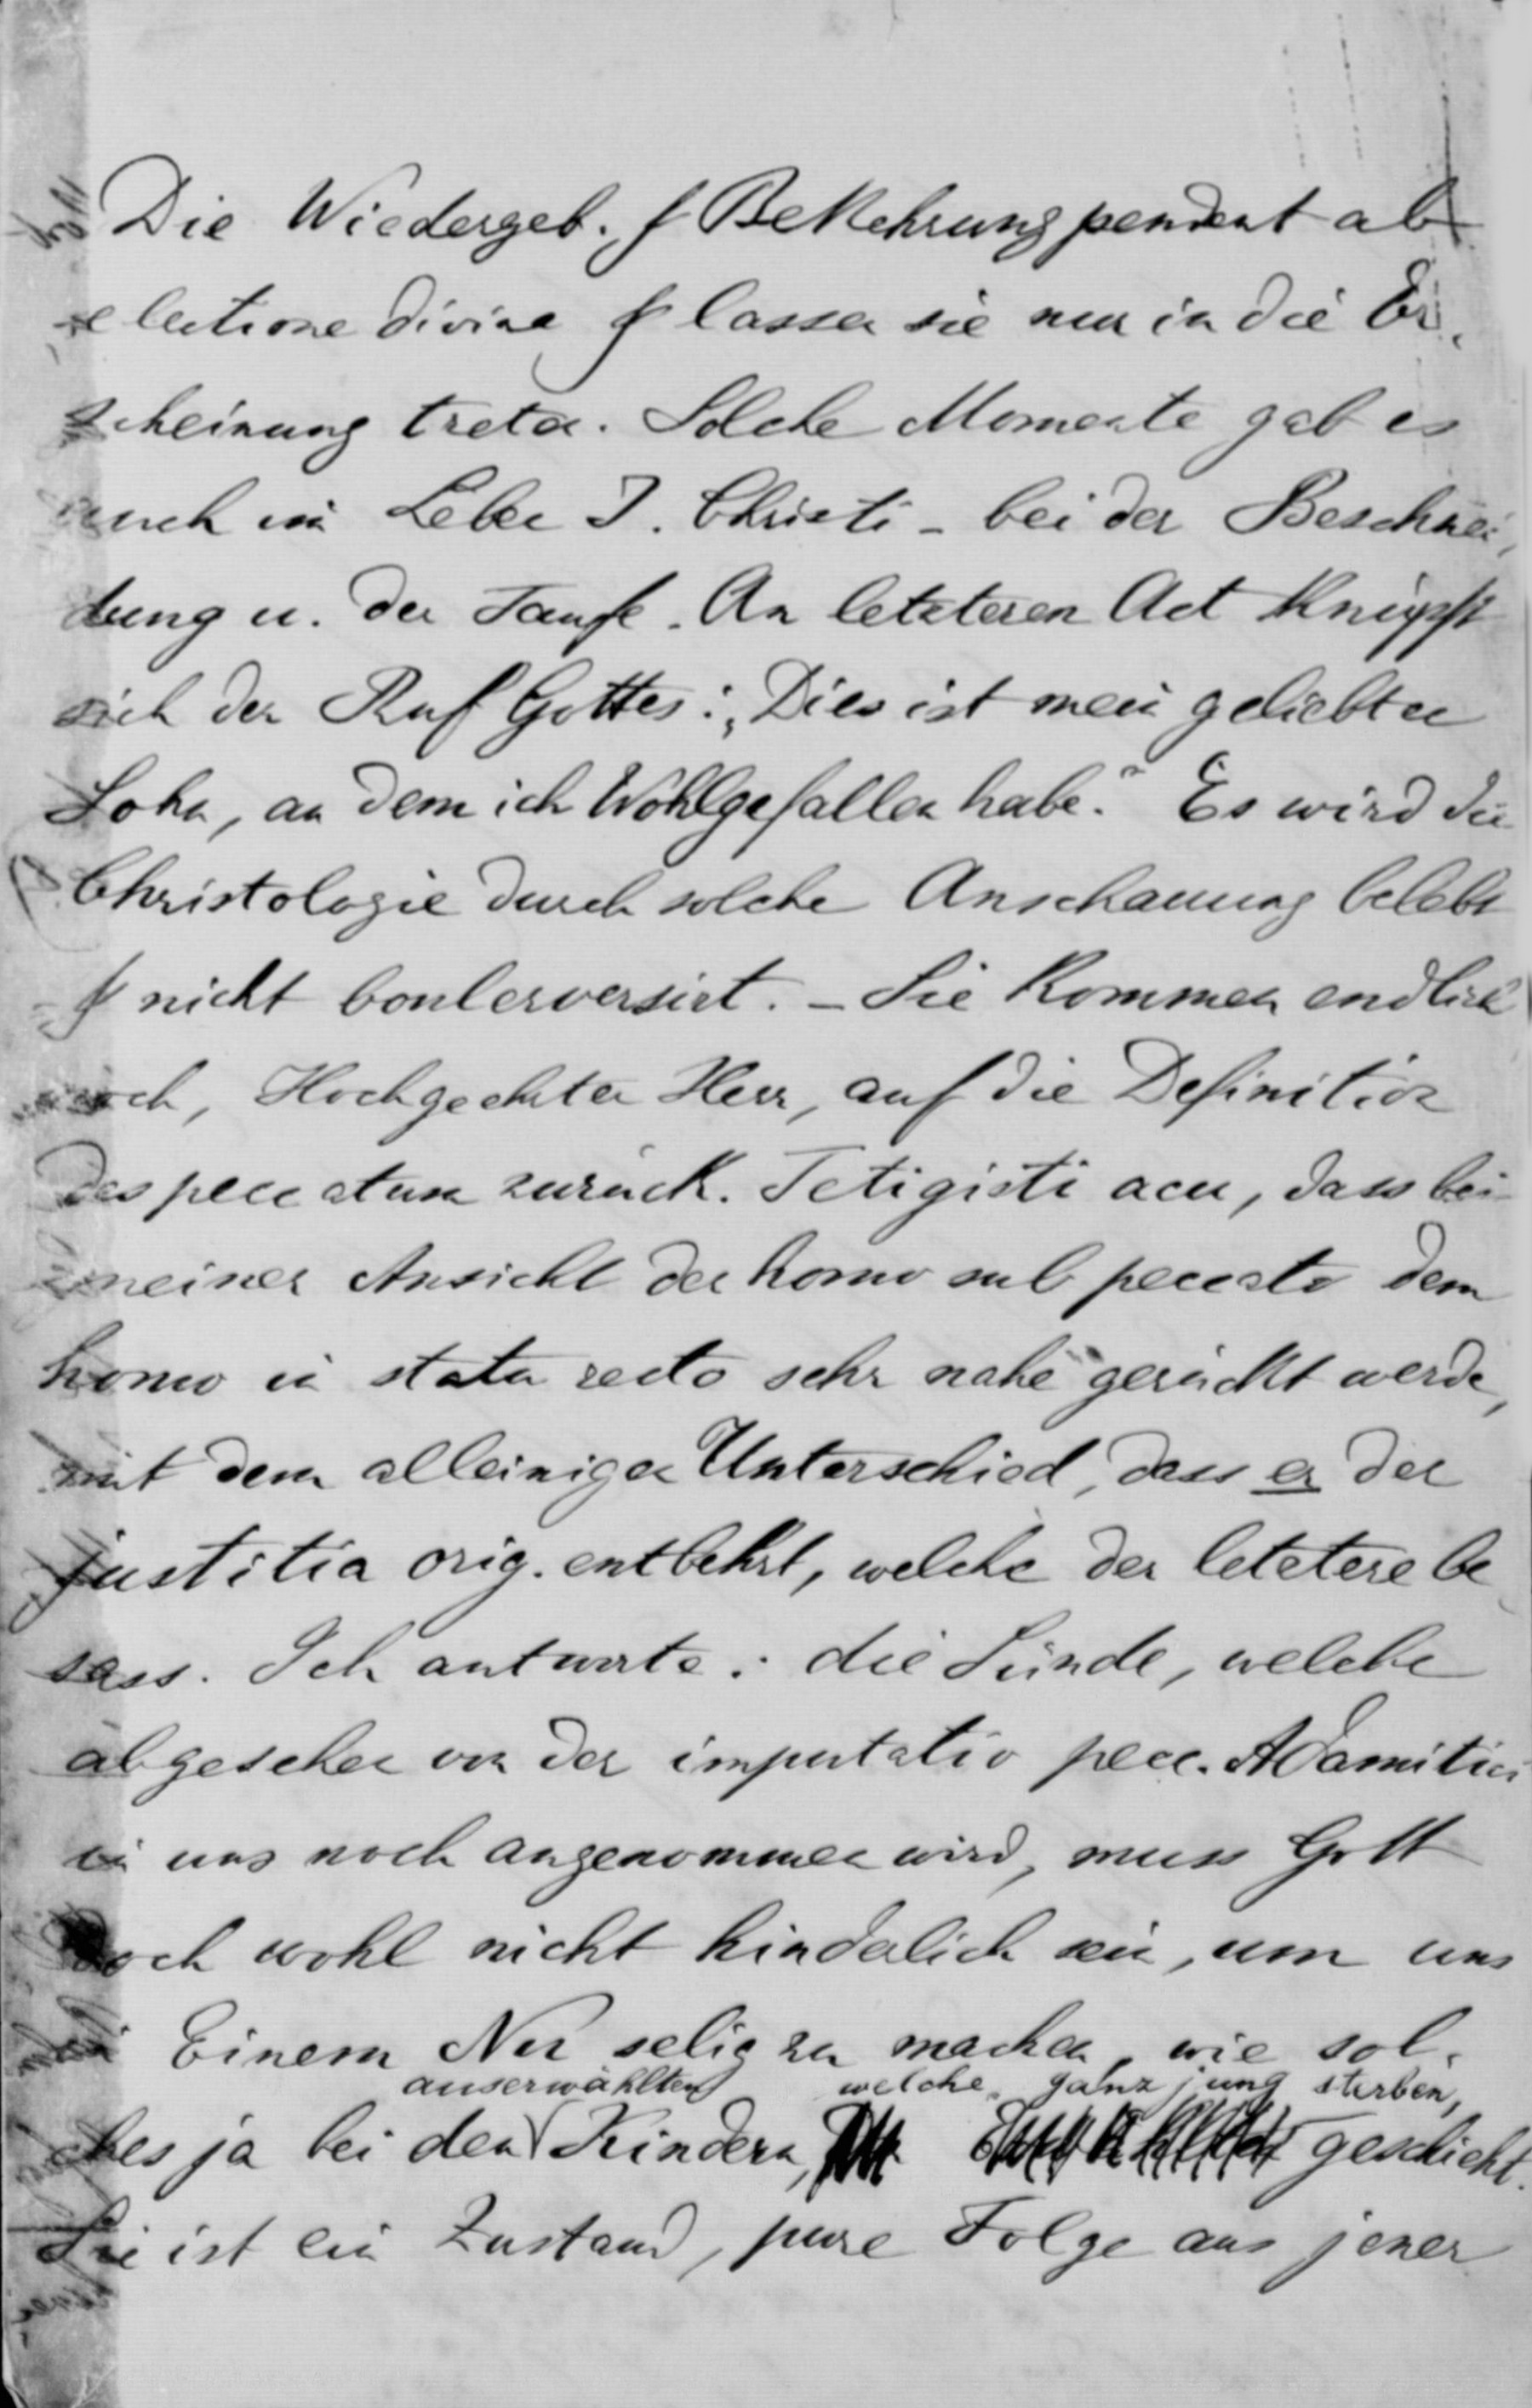 Die Wiedergeb. & Bekehrung pendent ab
electione divina & lassen sie nur in die Er-
scheinung treten. Solche Momente gab es
auch im Leben J. Christi - bei der Beschnei-
dung u. der Taufe. An letzteren Act knüpft
sich der Ruf Gottes: „Dies ist mein geliebter
Sohn, an dem ich Wohlgefallen habe.“ Es wird die
Christologie durch solche Anschauung belebt
& nicht . - Sie kommen endlich
noch, Hochgeehrter Herr, auf die Definition
des peccatum zurück. Tetigisti acu, dass bei
meiner Ansicht der homo sub peccato dem
homo in statu recto sehr nahe gerückt werde,
mit dem alleinigen Unterschied, dass er der
justitia orig. entbehrt, welche der letztere be-
sass. Ich antworte: die Sünde, welche
abgesehen von der imputatio pecc. Adamitici
in uns noch angenommen wird, muss Gott
doch wohl nicht hinderlich sein, um uns
in Einem Nu selig zu machen, wie sol-
auserwählten welche ganz jung sterben,
ches ja bei den Kindern, geschieht.
Sie ist ein Zustand, pure Folge aus jener